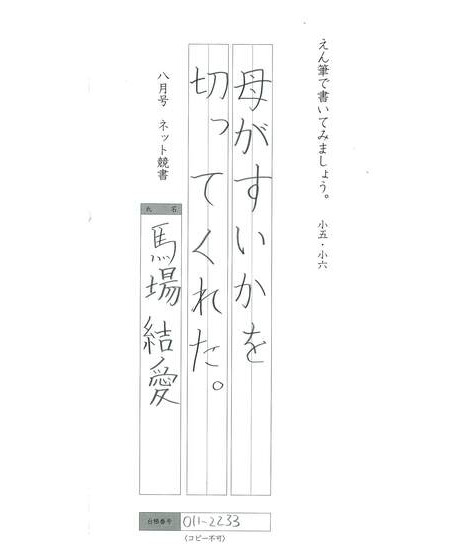 えん筆で書いてみましょう。 小五・小六
母がすいかを
切ってくれた。
八月号 ネット競書
氏名
馬場結愛
台帳番号 011-2233
〈コピー不可〉